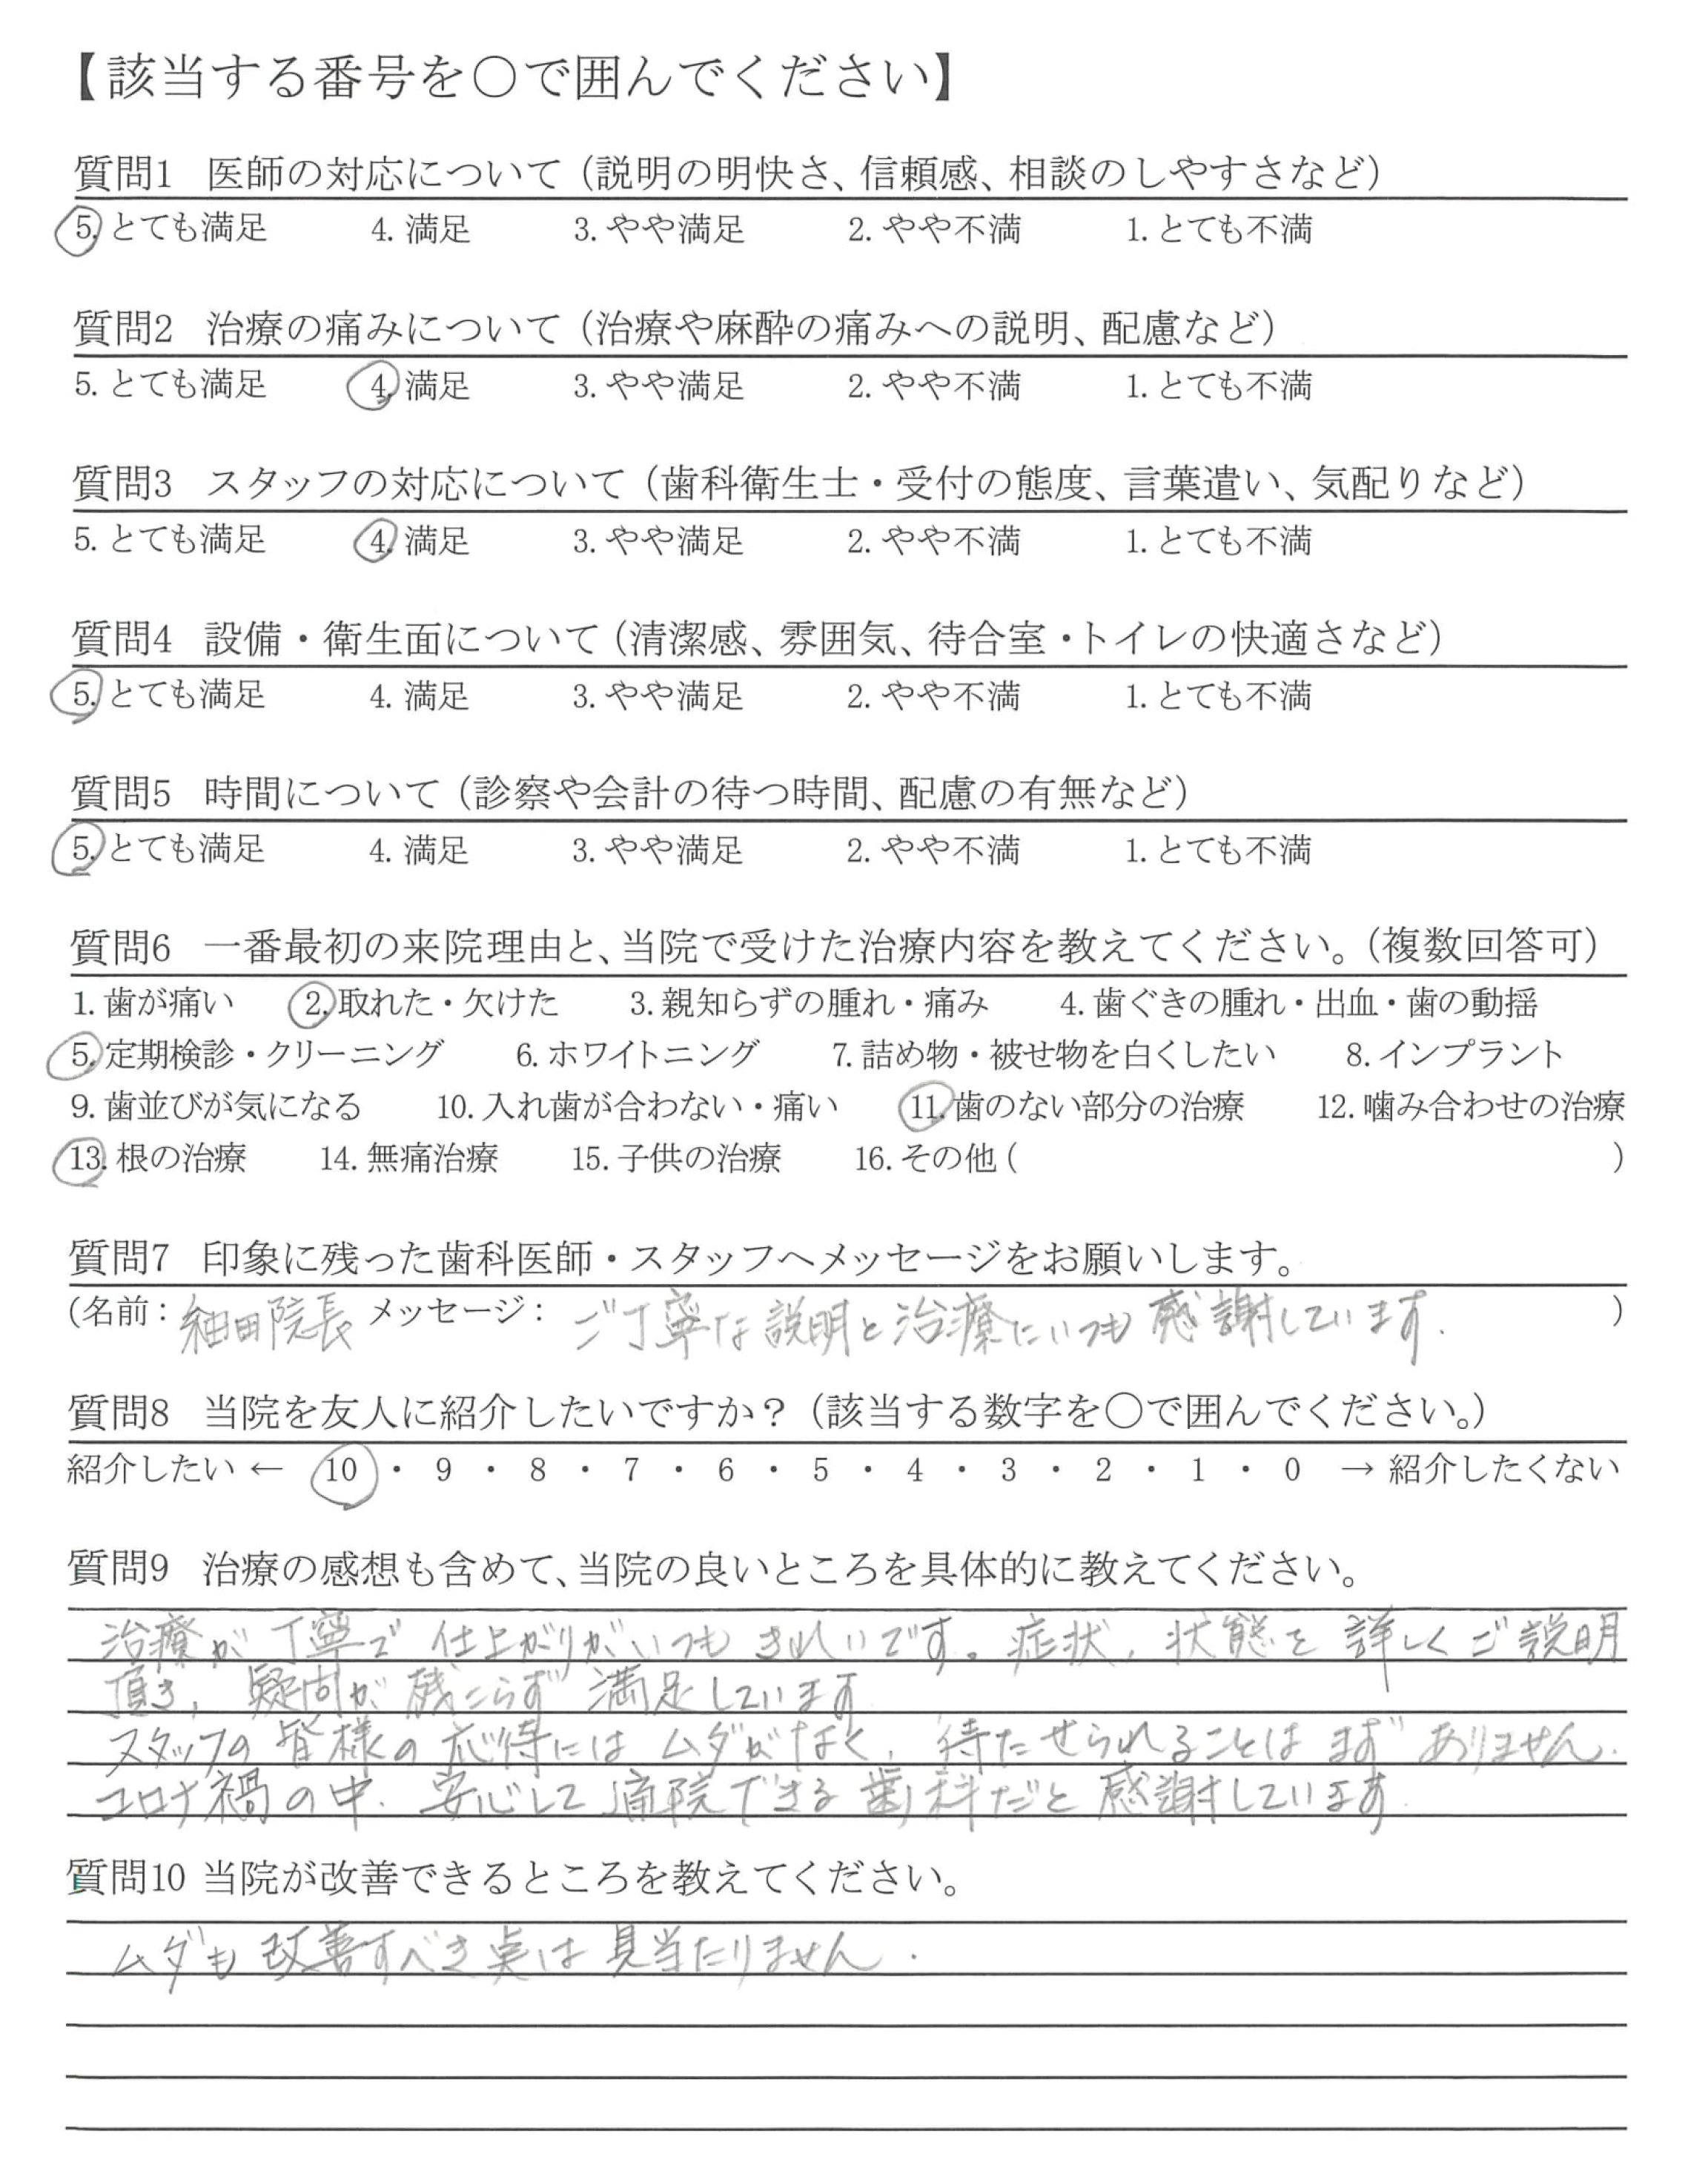 【該当する番号を〇で囲んでください】
質問1 医師の対応について（説明の明快さ、信頼感、相談のしやすさなど）
5. とても満足 4. 満足 3. やや満足 2. やや不満 1. とても不満
質問2 治療の痛みについて（治療や麻酔の痛みへの説明、配慮など）
5. とても満足 4. 満足 3. やや満足 2. やや不満 1. とても不満
質問3 スタッフの対応について（歯科衛生士・受付の態度、言葉遣い、気配りなど）
5. とても満足 4. 満足 3. やや満足 2. やや不満 1. とても不満
質問4 設備・衛生面について（清潔感、雰囲気、待合室・トイレの快適さなど）
5. とても満足 4. 満足 3. やや満足 2. やや不満 1. とても不満
質問5 時間について（診察や会計の待つ時間、配慮の有無など）
5. とても満足 4. 満足 3. やや満足 2. やや不満 1. とても不満
質問6 一番最初の来院理由と、当院で受けた治療内容を教えてください。（複数回答可）
1. 歯が痛い 2. 取れた・欠けた 3. 親知らずの腫れ・痛み 4. 歯ぐきの腫れ・出血・歯の動揺
5. 定期検診・クリーニング 6. ホワイトニング 7. 詰め物・被せ物を白くしたい 8. インプラント
9. 歯並びが気になる 10. 入れ歯が合わない・痛い 11. 歯のない部分の治療 12. 噛み合わせの治療
13. 根の治療 14. 無痛治療 15. 子供の治療 16. その他 ( )
質問7 印象に残った歯科医師・スタッフへメッセージをお願いします。
(名前：細田院長 メッセージ：ご丁寧な説明と治療にいつも感謝しています. )
質問8 当院を友人に紹介したいですか？（該当する数字を〇で囲んでください。）
紹介したい ← 10 ・ 9 ・ 8 ・ 7 ・ 6 ・ 5 ・ 4 ・ 3 ・ 2 ・ 1 ・ 0 → 紹介したくない
質問9 治療の感想も含めて、当院の良いところを具体的に教えてください。
治療が丁寧で仕上がりがいつもきれいです。症状, 状態を詳しくご説明
頂き, 疑問が残こらず満足しています
スタッフの皆様の応待にはムダがなく, 待たせられることはまずありません.
コロナ禍の中. 安心して通院できる歯科だと感謝しています.
質問10 当院が改善できるところを教えてください。
ムダも改善すべき点は見当たりません.